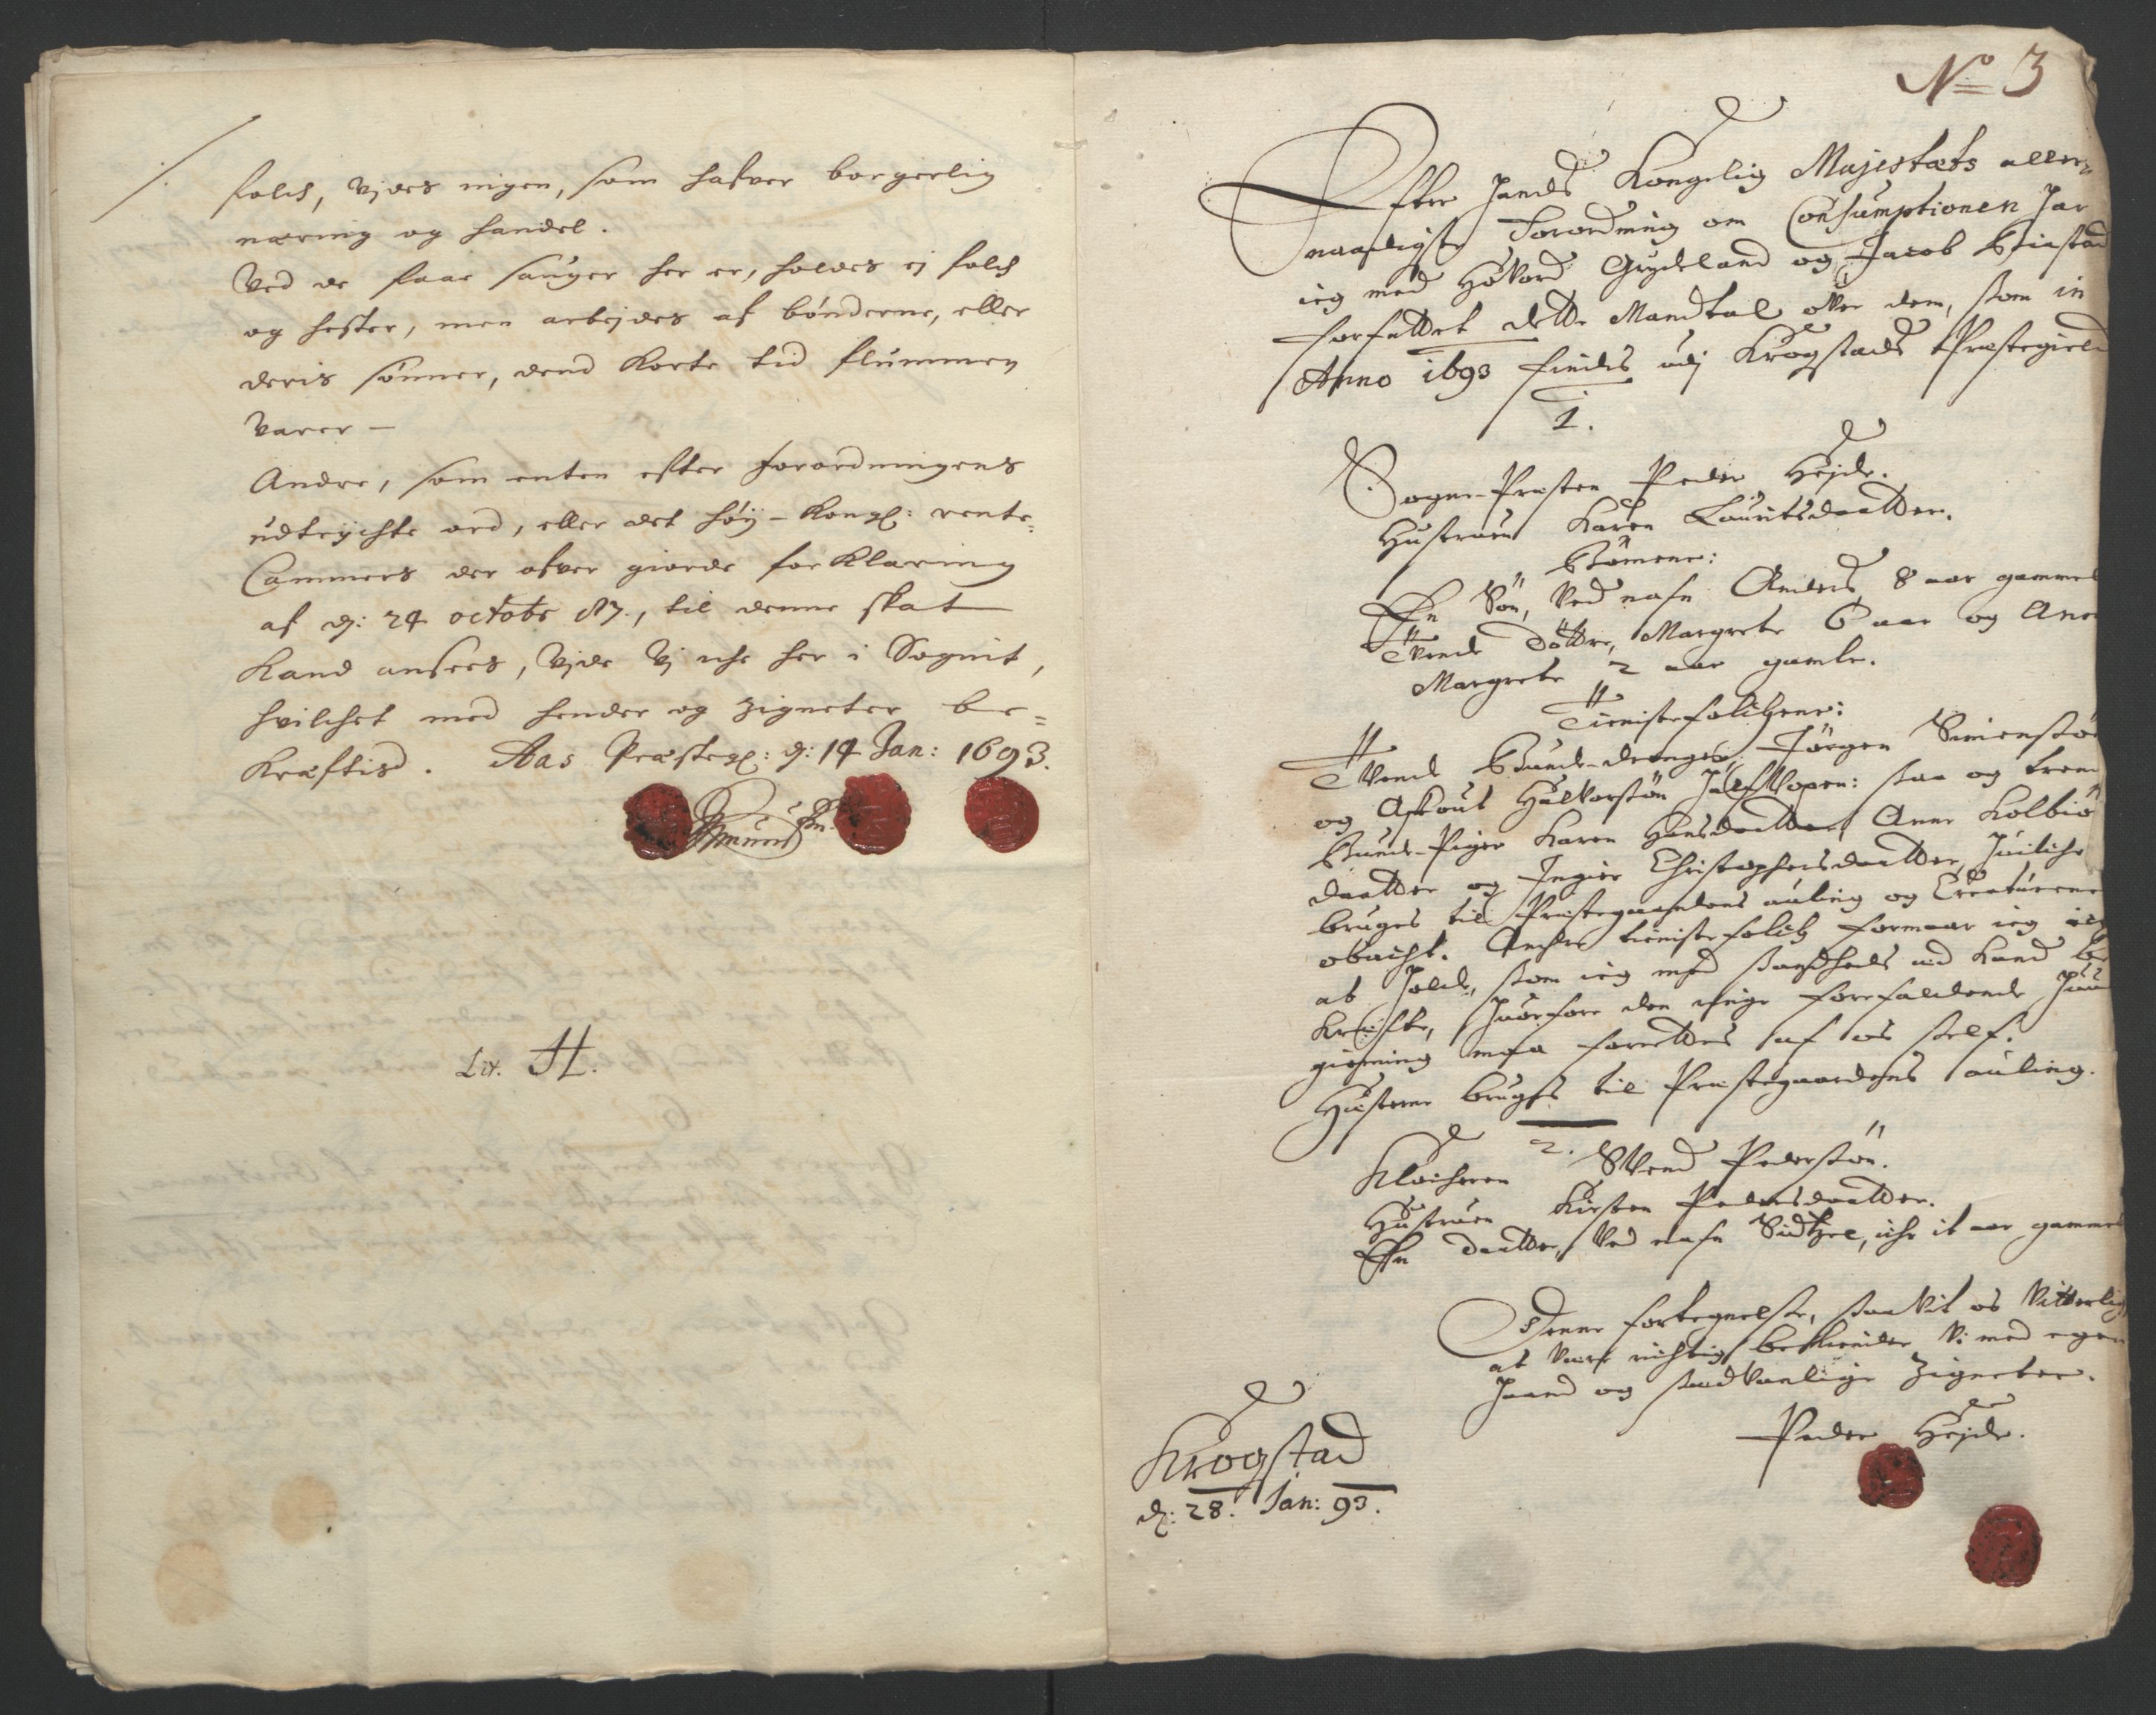 folch, vides ingen, som hafver borgerlig
næring og handel.
Ved de faae sauger her er, holdes ej folch
og hester, men arbejdes af bønderne, eller
deris sønner, dend korte tid flummen
varer –
Andre, som enten efter forordningens
udtrychte ord, eller det høy-Kongl: rente-
Cammers der ofver giorde forklaring
af d: 24 octobr 87., til denne skat
kand ansees, vide vj iche her i Sognit,
hvilchet med hender og zigneter be=
kræftis. Aas Præstegl: d: 14 Jan: 1693.
Lit. H.
No 3
Efter Hands Kongelig Majestæts aller-
naadigste Forordning om Consumptionen har
ieg med Hovord Grydeland og Jacob
forfattet dette Mandtal over dem, som in
Anno 1693 findes udj Krogstads Præstegield
1.
Sogne-Præsten Peder Hejde.
Hustruen Karen Lauritsdaatter.
Børnene:
En Søn, ved nafn Anders, 8 aar gammel
Tvende Døttre, Margrete 6 aar og Ane
Margrete 2 aar gamle.
Tienistefolchene:
Tvende Bunde-drenge, Jørgen Simensøn
og Halvorsøn half voxen: saa og trend
Bunde-Piger Karen Hansdaatter, Anne Kolbiø
daatter og Ingier Christophersdaatter, huilche
bruges til Præstegaardens auling og Creaturene
obacht. Andre tienistefolch formaar ieg
at holde, som ieg med sandheds ed kand be
kræfte, huorfore den ringe forefaldende huus
gierning maa forrettes af os self.
Hæstene bruges til Præstegaardens auling.
2.
Klocheren Svend Pedersøn.
Hustruen Kirsten Pedersdaatter.
En daatter, ved nafn Sidtzel, iche it aar gammel
Denne fortegnelse, saavit os vitterlig
at være richtig bekiender vi med egen
haand og sædvanlige Zigneter.
Peder Hejde.
Krogstad
d: 28. Jan: 93.